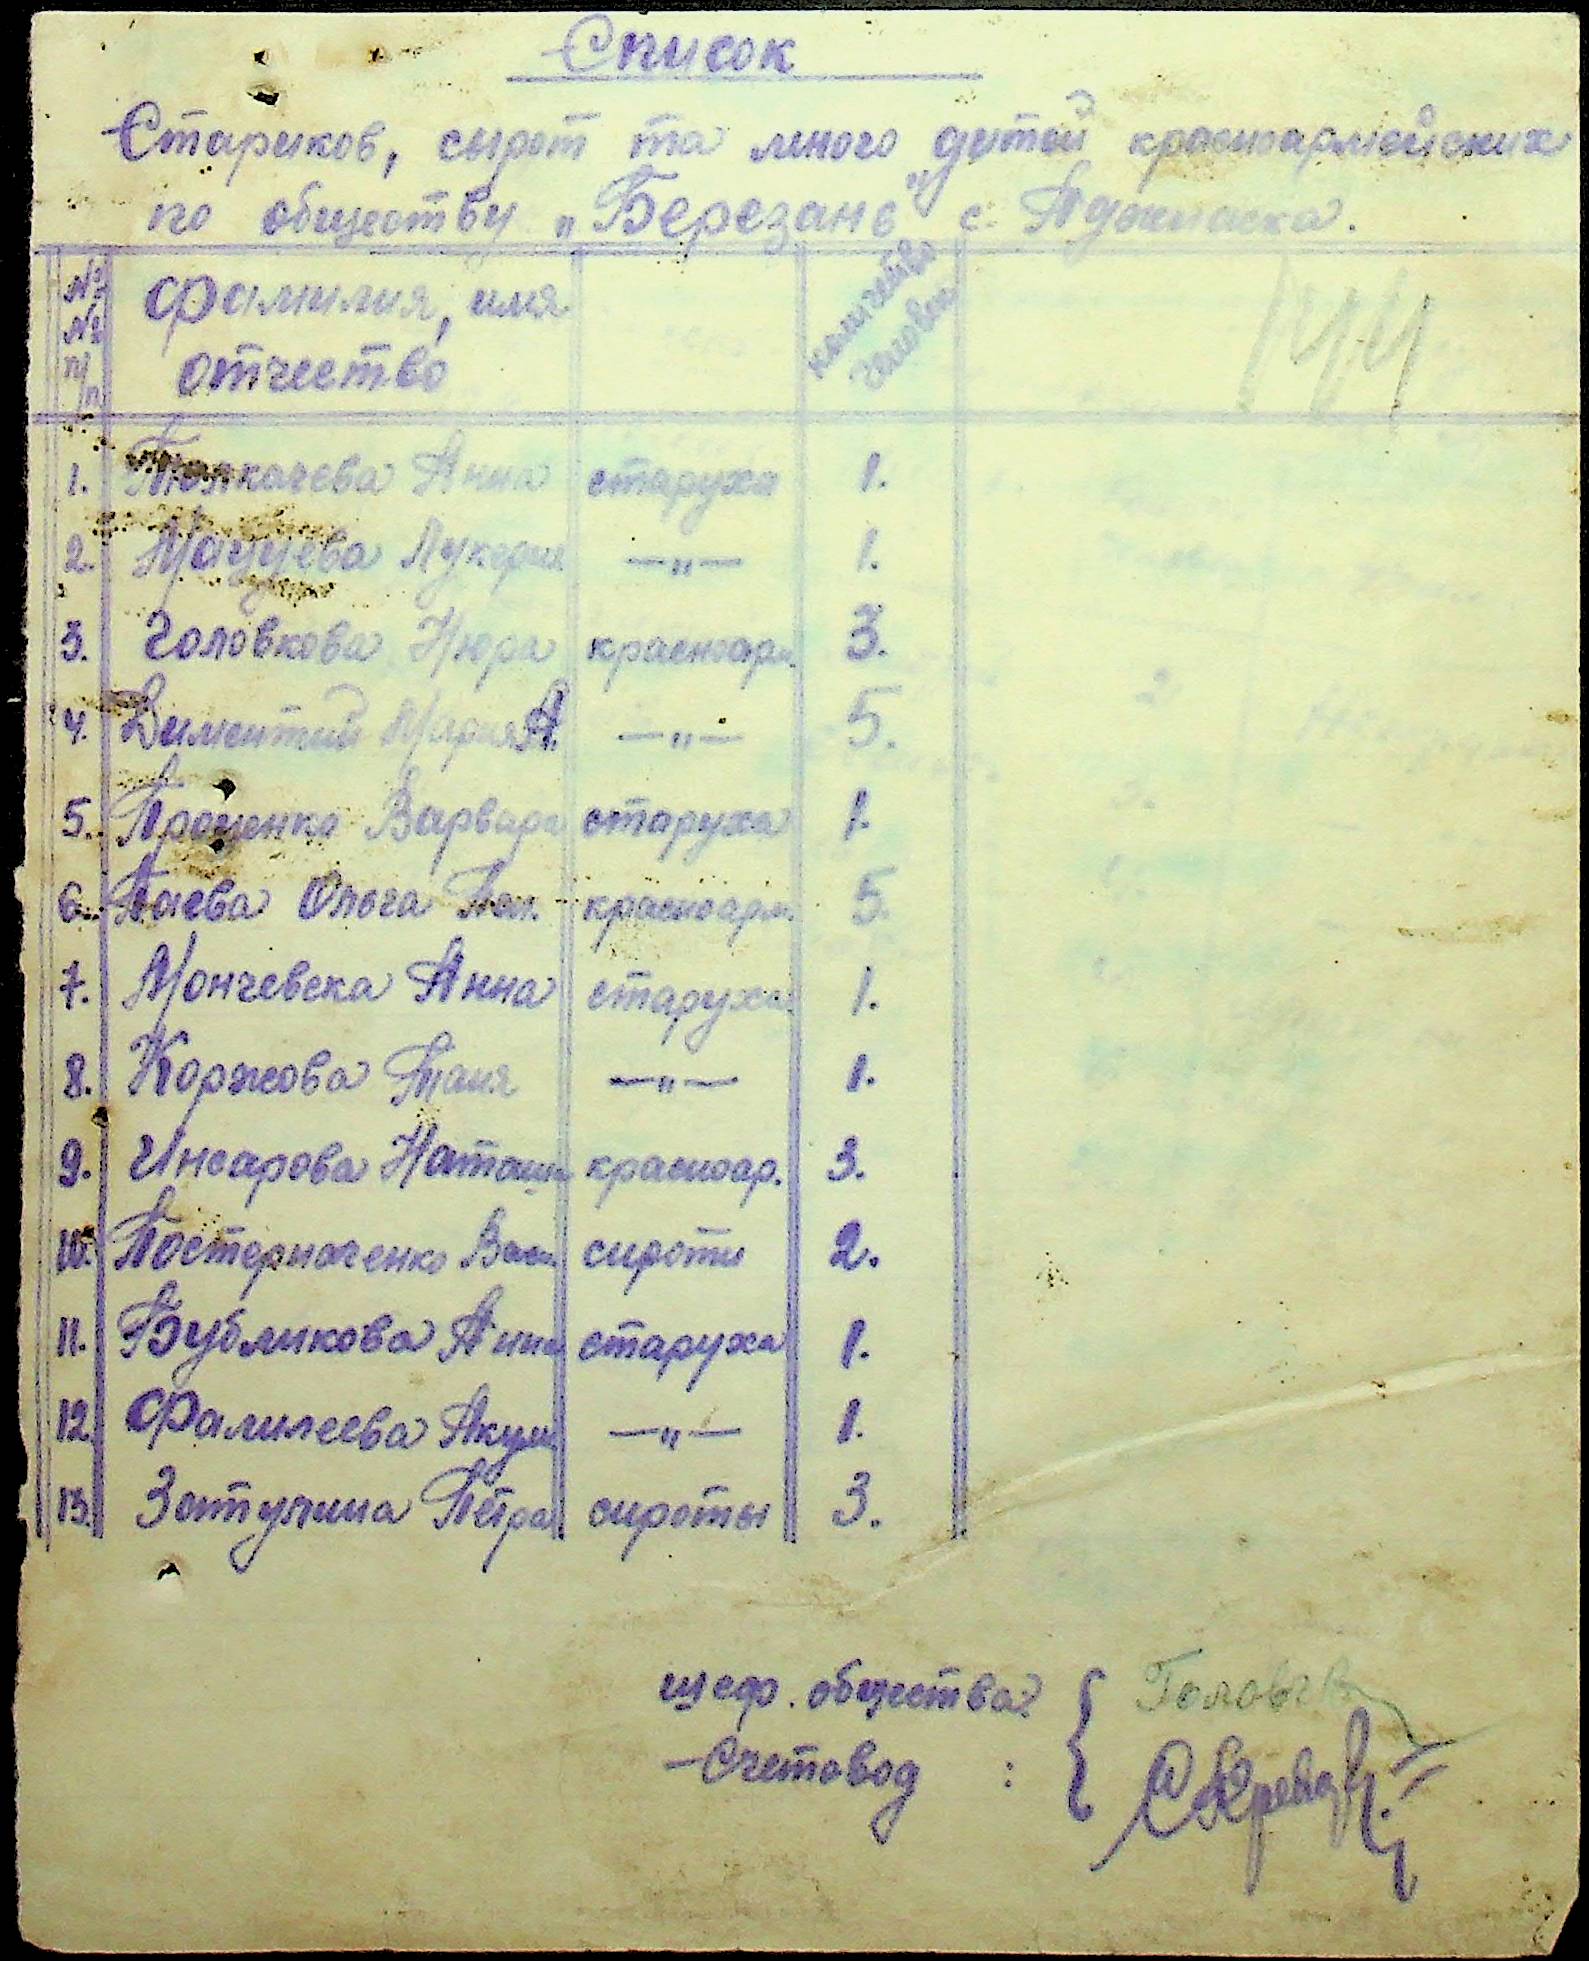 Список
Стариков, сырот та много дитей красноармейских
по обществу „Березань" с.
№ № п/п фамилия, имя отчество количество человек
1. Толкачева Анна старуха 1.
2. Мацуева Лукерия —„— 1.
3. Головкова Нюра красноарм. 3.
4. Диментий Мария А. —„— 5.
5. Проценко Варвара старуха 1.
6. Паева Ольга Пол. красноарм. 5.
7. Мончевска Анна старуха 1.
8. Коржова Таня —„— 1.
9. Инсарова Наташа красноар. 3.
10. Постерначенко Васи. сироти 2.
11. Бубликова Анна старуха 1.
12. Фалилеева Акул. —„— 1.
13. Затулина Петра сироты 3.
шеф. общества:
Счетовод :